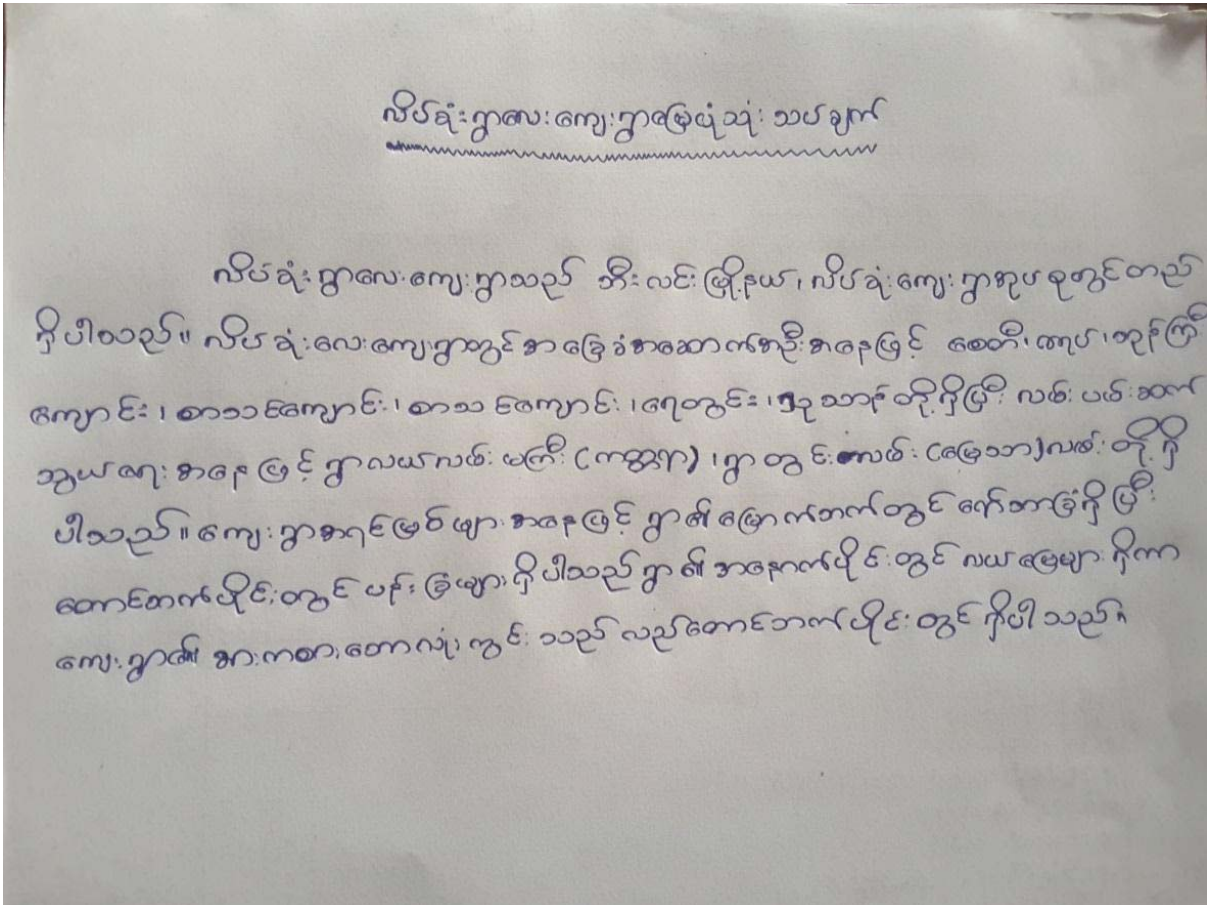 လိပ်ခုံးရွာလေးကျေးရွာမြေပုံသုံးသပ်ချက်
လိပ်ခုံးရွာလေးကျေးရွာသည် ဘီးလင်းမြို့နယ်၊ လိပ်ခုံးကျေးရွာအုပ်စုတွင်တည်
ရှိပါသည်။ လိပ်ခုံးလေးကျေးရွာတွင် အခြေခံအဆောက်အဦးအနေဖြင့် စေတီ၊ ဇရပ်၊ ဘုန်းကြီး
ကျောင်း၊ စာသင်ကျောင်း၊ စာသင်ကျောင်း၊ ရေတွင်း၊ သုသာန် တို့ရှိပြီး လမ်းပမ်းဆက်
သွယ်ရေးအနေဖြင့် ရွာလယ်လမ်းမကြီး (ကတ္တရာ)၊ ရွာတွင်းလမ်း (မြေသာ) လမ်းတို့ရှိ
ပါသည်။ ကျေးရွာအရင်းမြစ်များအနေဖြင့် ရွာ၏မြောက်ဘက်တွင် ရော်ဘာခြံရှိပြီး
တောင်ဘက်ပိုင်းတွင် ပန်းခြံများရှိပါသည် ရွာ၏အနောက်ပိုင်းတွင် လယ်မြေများရှိကာ
ကျေးရွာ၏ အားကစားဘောလုံးကွင်းသည် လည်တောင်ဘက်ပိုင်းတွင် ရှိပါသည်။